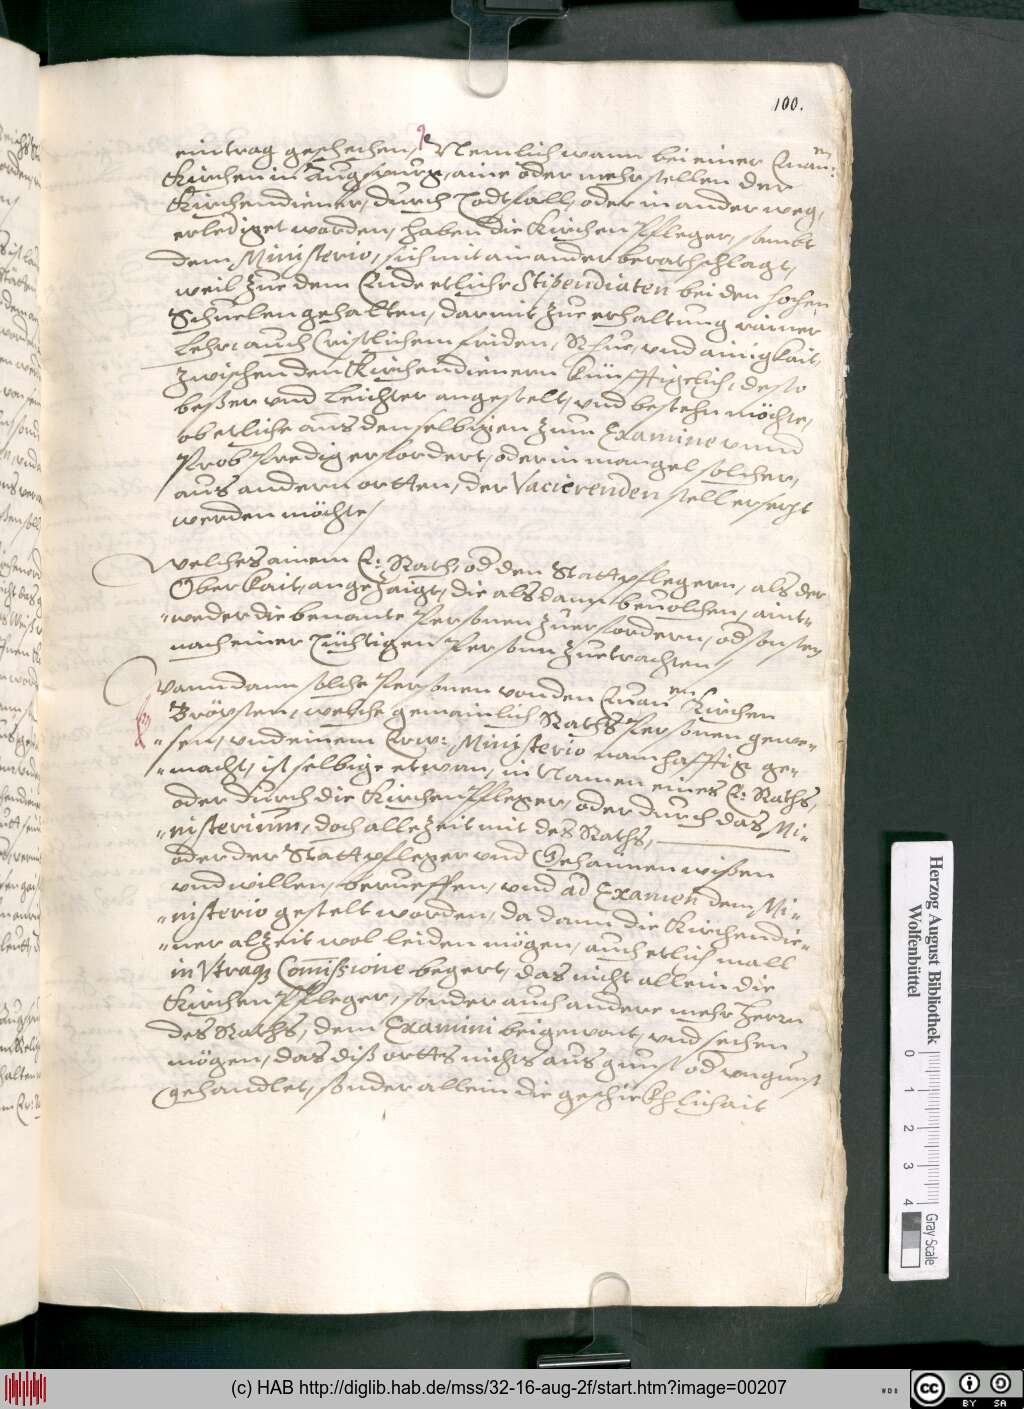 100.
eintrag geschechen, Nemlich wann bei einer Euan:
Kirchen in Augspurg, aine oder mehr stellen der
Kirchendiener, durch Todtfall, oder in ander weg,
erlediget worden, haben die Kirchen Pfleger, sambt
dem Ministerio, sich mit ainander berathschlagt,
weil zue dem Ende etliche Stipendiaten bei den hochen
Schuelen gehalten, darmit zue erhaltung rainer
Lehr, auch Cristlichem friden, Rhue, vnd ainigkait,
zwischen den Kirchendienern künfftigelich, desto
beßer vnd leichter angestelt, vnd bestehn möchte,
ob etliche aus denselbigen zum Examine vnnd
Prob Predig erfordert, oder in mangel solcher,
aus andern ortten, der Vacierenden stell ersezt
werden möchte,
Welches ainem E: Rath, od den Stattpflegern, als der
Oberkait, angezaigt, die alsdann beuolchen, aint-
weder die benante Personen zuerfordern, od sonsten
nach einer Tüchtigen Person zuetrachten,
Wann dann solche Personen von den Euan en Kirchen
Pröpsten, welche gemainlich Raths Personen gewe-
sen, vnd einem Erw: Ministerio namhafftig ge-
macht, ist selbige etwan, in Namen eines E: Raths,
oder durch die Kirchen Pfleger, oder durch das Mi-
nisterium, doch allezeit mit des Raths,
oder der Stattpfleger vnd Gehaimen wißen
vnd willen, berueffen, vnd ad Examen dem Mi-
nisterio gestelt worden, da dann die Kirchendie-
ner alzeit wol leiden mögen, auch etlich mall
in Vtraq Comißione begert, das nicht allein die
Kirchen Pfleger, sonder auch andere mehr Herrn
des Raths, dem Examini beigewont, vnd sechen
mögen, das diß ortts nichts aus gunst od vngunst
gehandlet, sonder allein die geschickhlichait
Herzog August Bibliothek
Wolfenbüttel
0 1 2 3 4
Gray Scale
(c) HAB http://diglib.hab.de/mss/32-16-aug-2f/start.htm?image=00207
cc BY SA